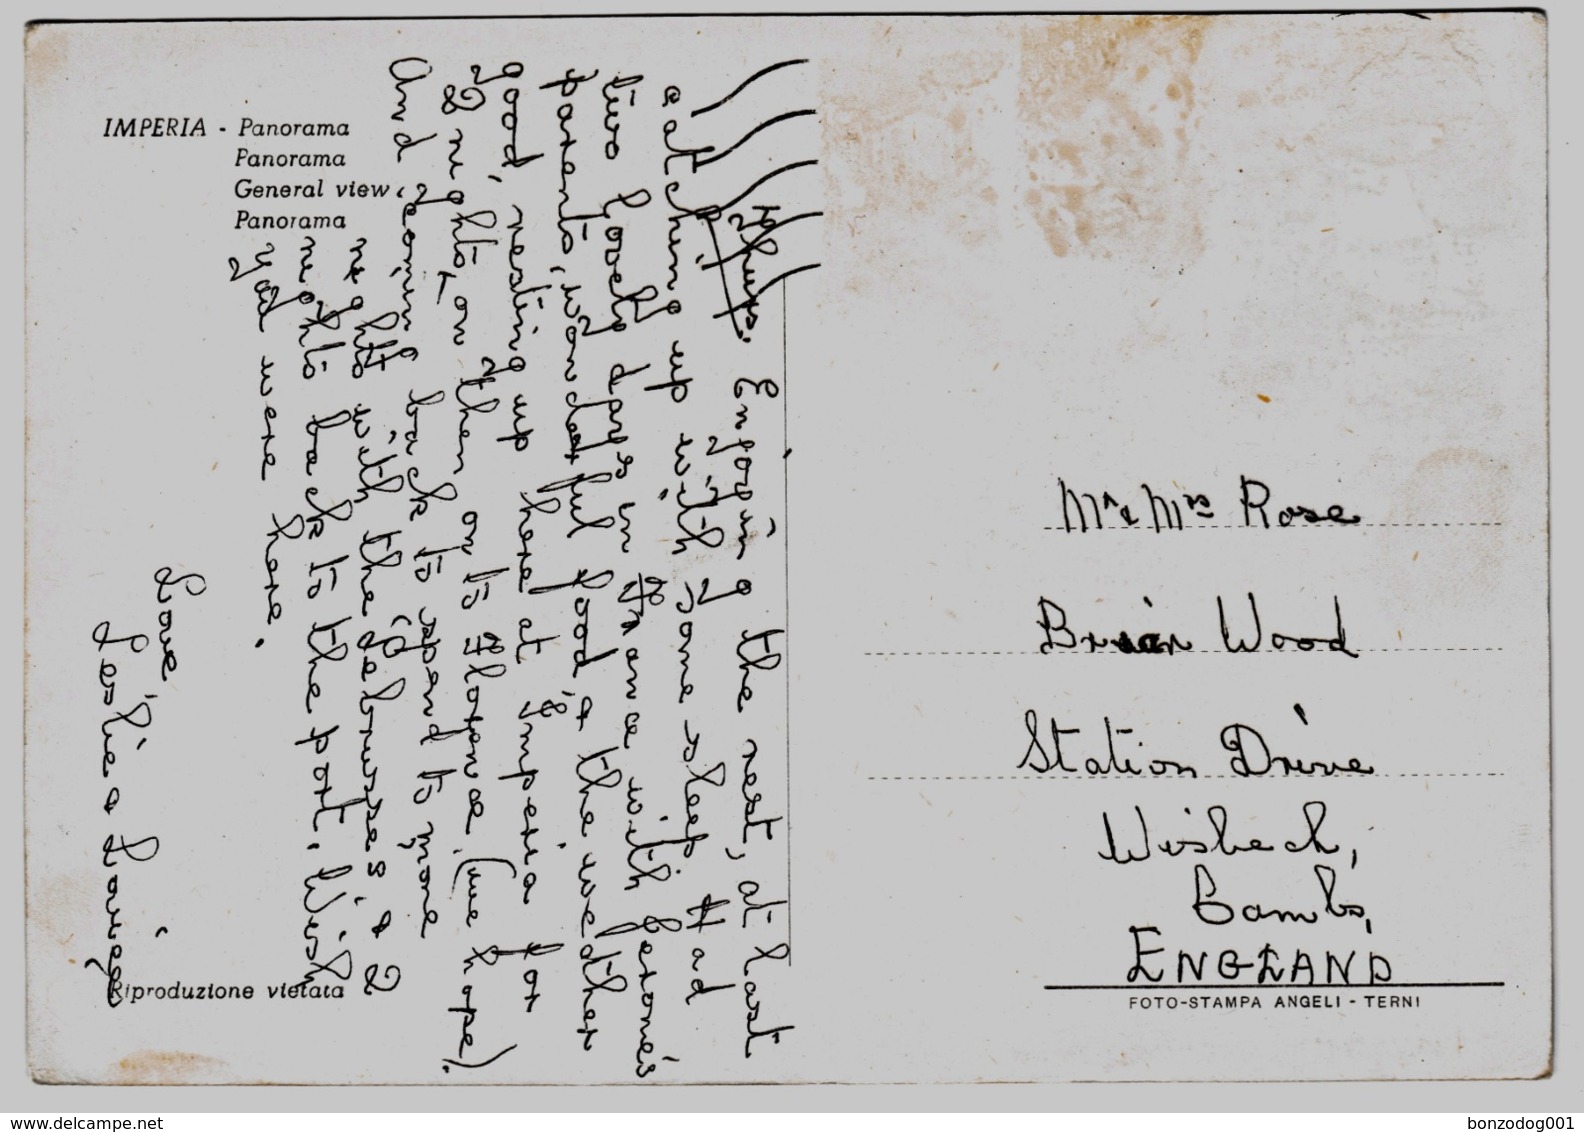 IMPERIA - Panorama
Panorama
General view
Panorama
Thurs. Enjoying the rest, at last
catching up with some sleep. Had
two lovely days in France with Jerome's
parents, wonderful food, & the weather
good, resting up here at Imperia for
2 nights, then on to Florence. (we hope).
And coming back to spend to more
nights with the Labrusses & 2
nights back to the port. Wish
you were here.
Love,
Leslie & Louise
Riproduzione vietata
Mr & Mrs Rose
Brian Wood
Station Drive
Wisbech,
Cambs,
ENGLAND
FOTO-STAMPA ANGELI - TERNI
www.delcampe.net
bonzodog001